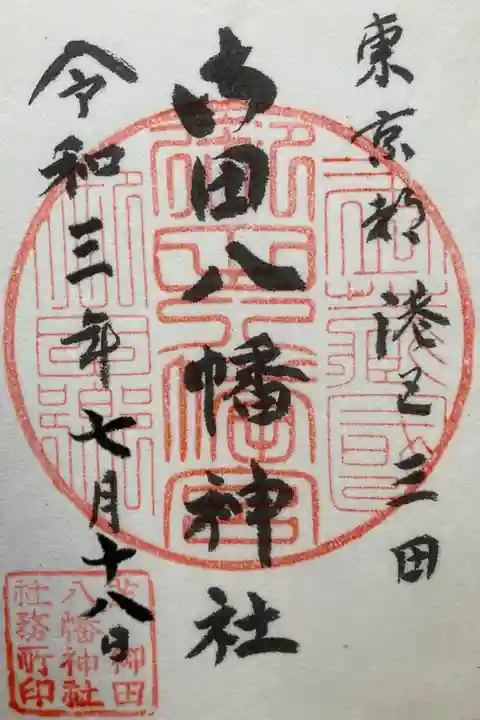 東京都港区三田
御田八幡神社
令和三年七月十八日
芝御田
八幡神社
社務所印